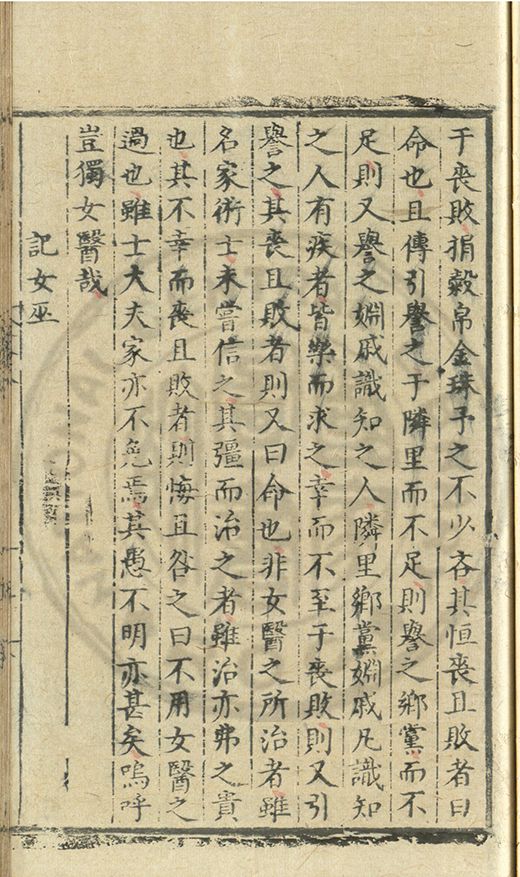 于喪敗捐穀帛金珠予之不少吝其恒喪且敗者曰
命也且傳引譽之于隣里而不足則譽之鄉黨而不
足則又譽之婣戚識知之人隣里鄉黨婣戚凡識知
之人有疾者皆樂而求之幸而不至于喪敗則又引
譽之其喪且敗者則又曰命也非女醫之所治者雖
名家術士未嘗信之其彊而治之者雖治亦弗之貴
也其不幸而喪且敗者則悔且咎之曰不用女醫之
過也雖士大夫家亦不免焉其愚不明亦甚矣嗚呼
豈獨女醫哉
記女巫